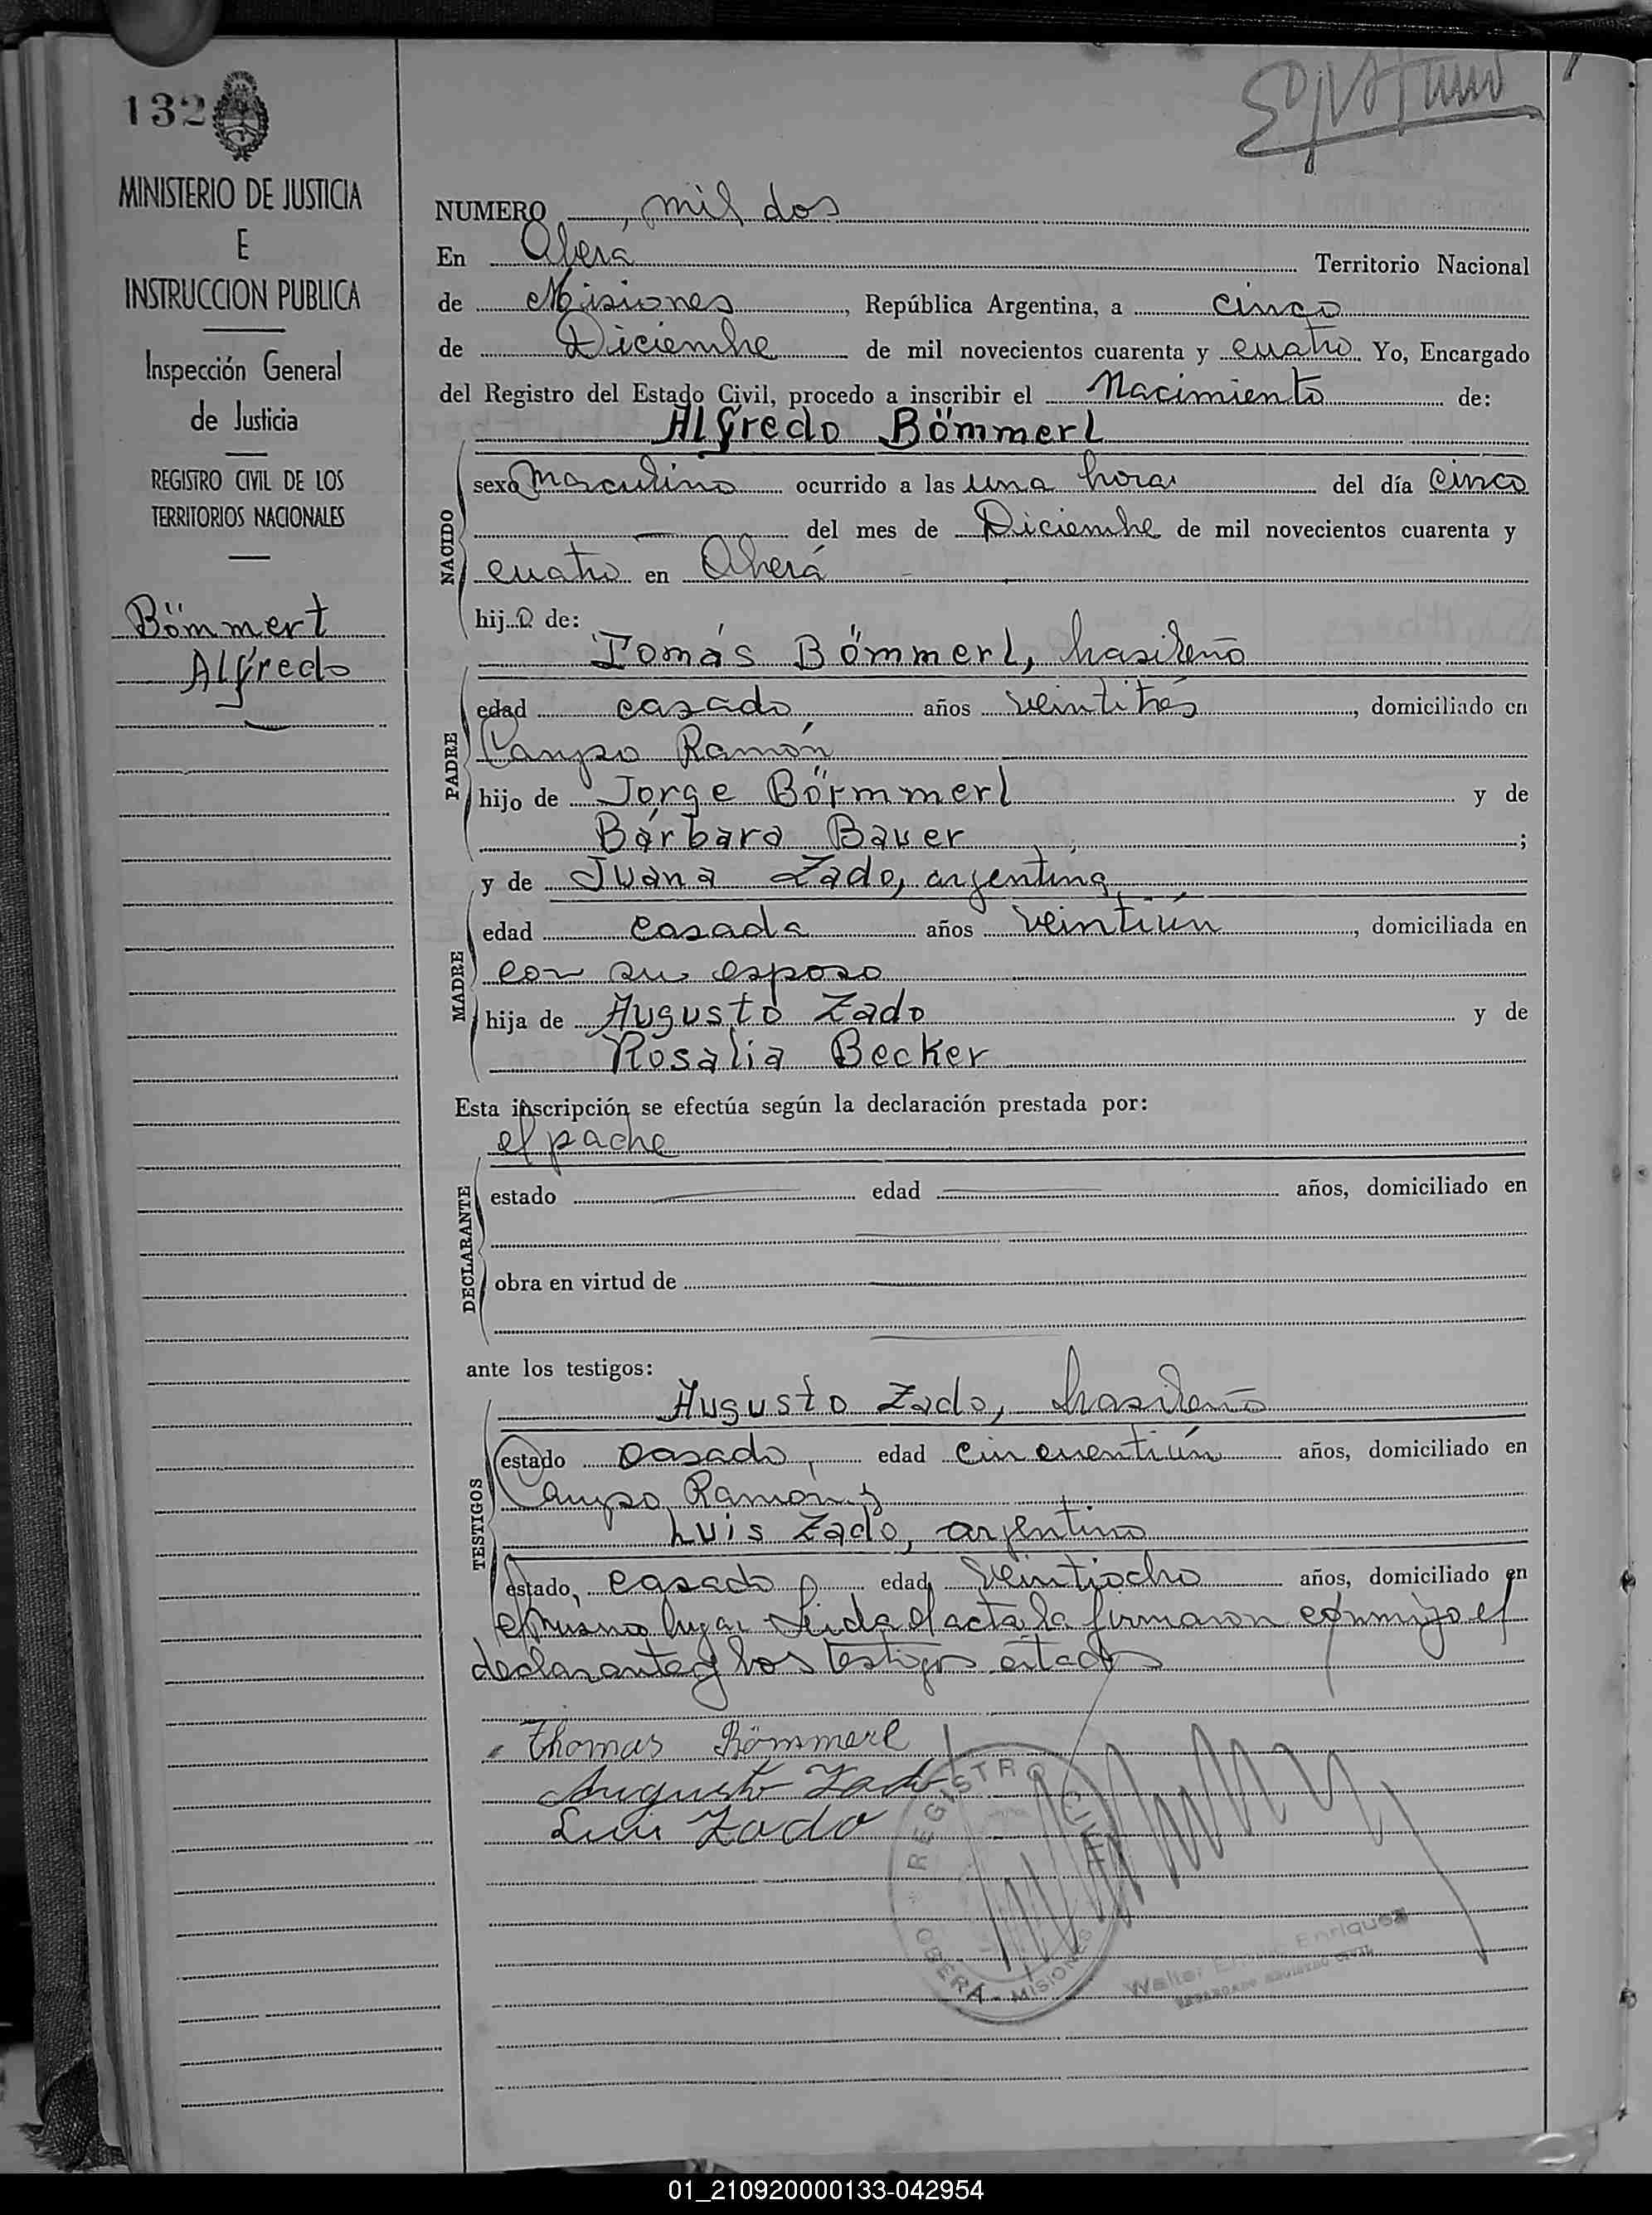 132
MINISTERIO DE JUSTICIA
E
INSTRUCCION PUBLICA
Inspección General
de Justicia
REGISTRO CIVIL DE LOS
TERRITORIOS NACIONALES
Bömmert
Alfredo
NUMERO mil dos
En Oberá Territorio Nacional
de Misiones, República Argentina, a cinco
de Diciembre de mil novecientos cuarenta y cuatro Yo, Encargado
del Registro del Estado Civil, procedo a inscribir el Nacimiento de:
Alfredo Bömmerl
NACIDO
sexo masculino ocurrido a las una hora del día cinco
del mes de Diciembre de mil novecientos cuarenta y
cuatro en Oberá
hijo de:
Tomás Bömmerl, brasileño
PADRE
edad casado, años veintitrés, domiciliado en
Campo Ramón
hijo de Jorge Börmmerl y de
Bárbara Bauer;
y de Juana Zado, argentina,
MADRE
edad casada años veintiún, domiciliada en
con su esposo
hija de Augusto Zado y de
Rosalia Becker
Esta inscripción se efectúa según la declaración prestada por:
el padre
DECLARANTE
estado edad años, domiciliado en
obra en virtud de
ante los testigos:
Augusto Zado, brasileño
TESTIGOS
estado casado, edad cincuentiún años, domiciliado en
Campo Ramon y
Luis Zado, argentino
estado, casado, edad, veintiocho años, domiciliado en
el mismo lugar Leida el acta la firmaron conmigo el
declarante y los testigos citados
Thomas Bömmerl
Augusto Zado
Luis Zado
REGISTRO CIVIL
OBERÁ - MISIONES
Walter Enriquez
ENCARGADO REGISTRO CIVIL
01_210920000133-042954